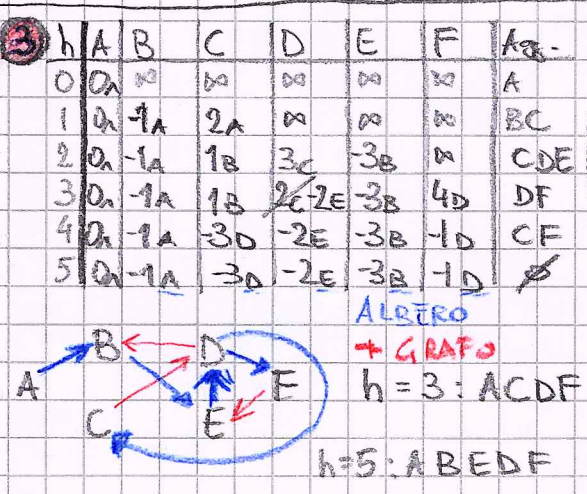 3 h A B C D E F Agg.
0 0n ∞ ∞ ∞ ∞ ∞ A
1 0n -1A 2A ∞ ∞ ∞ BC
2 0n -1A 1B 3C -3B ∞ CDE
3 0n -1A 1B 2C -2E -3B 4D DF
4 0n -1A -3D -2E -3B -1D CF
5 0n -1A -3D -2E -3B -1D ∅
ALBERO
+ GRAFO
B D
A F h = 3 : ACDF
C E
h=5 : ABEDF